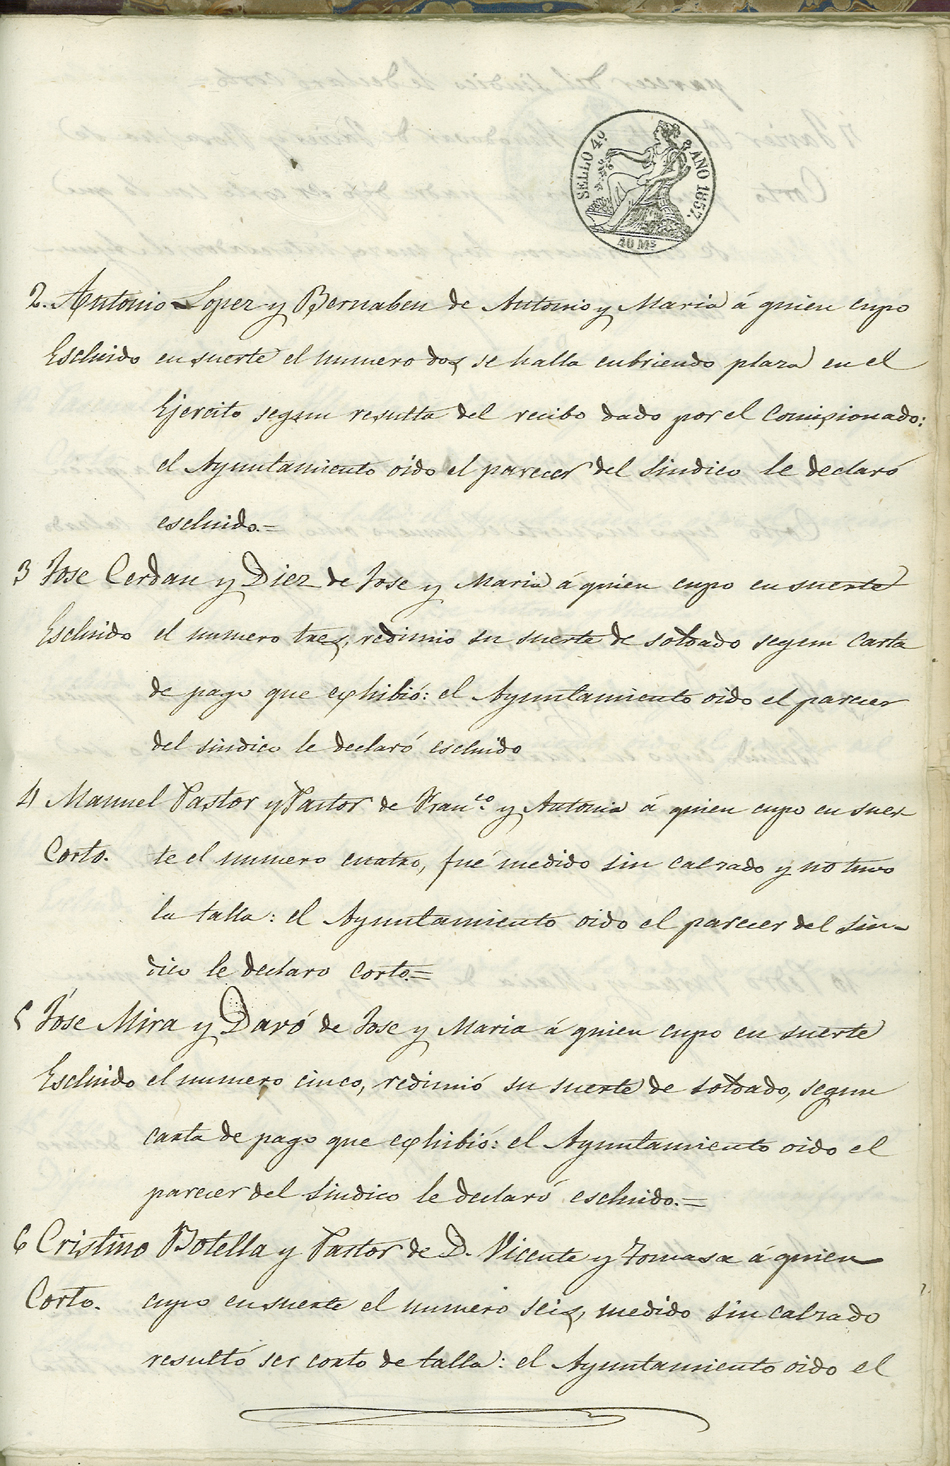 SELLO 4º AÑO 1857.
40 Ms
2. Antonio Lopez y Bernabeu de Antonio y Maria á quien cupo
Escluido en suerte el numero dos, se halla cubriendo plaza en el
Ejercito segun resulta del recibo dado por el Comisionado:
el Ayuntamiento oido el parecer del Sindico le declaró
escluido.=
3 Jose Cerdan y Diez de Jose y Maria á quien cupo en suerte
Escluido el numero tres, redimio su suerte de soldado segun carta
de pago que exhibió: el Ayuntamiento oido el parecer
del sindico le declaró escluido
4 Manuel Pastor y Pastor de Franco. y Antonia á quien cupo en suer
Corto. te el numero cuatro, fué medido sin calzado y no tuvo
la talla: el Ayuntamiento oido el parecer del sin-
dico le declaro corto.=
5 Jose Mira y Davó de Jose y Maria á quien cupo en suerte
Escluido el numero cinco, redimió su suerte de soldado, segun
carta de pago que exhibió: el Ayuntamiento oido el
parecer del Sindico le declaró escluido.=
6 Cristino Botella y Pastor de D. Vicente y Tomasa á quien
Corto. cupo en suerte el numero seis, medido sin calzado
resultó ser corto de talla: el Ayuntamiento oido el